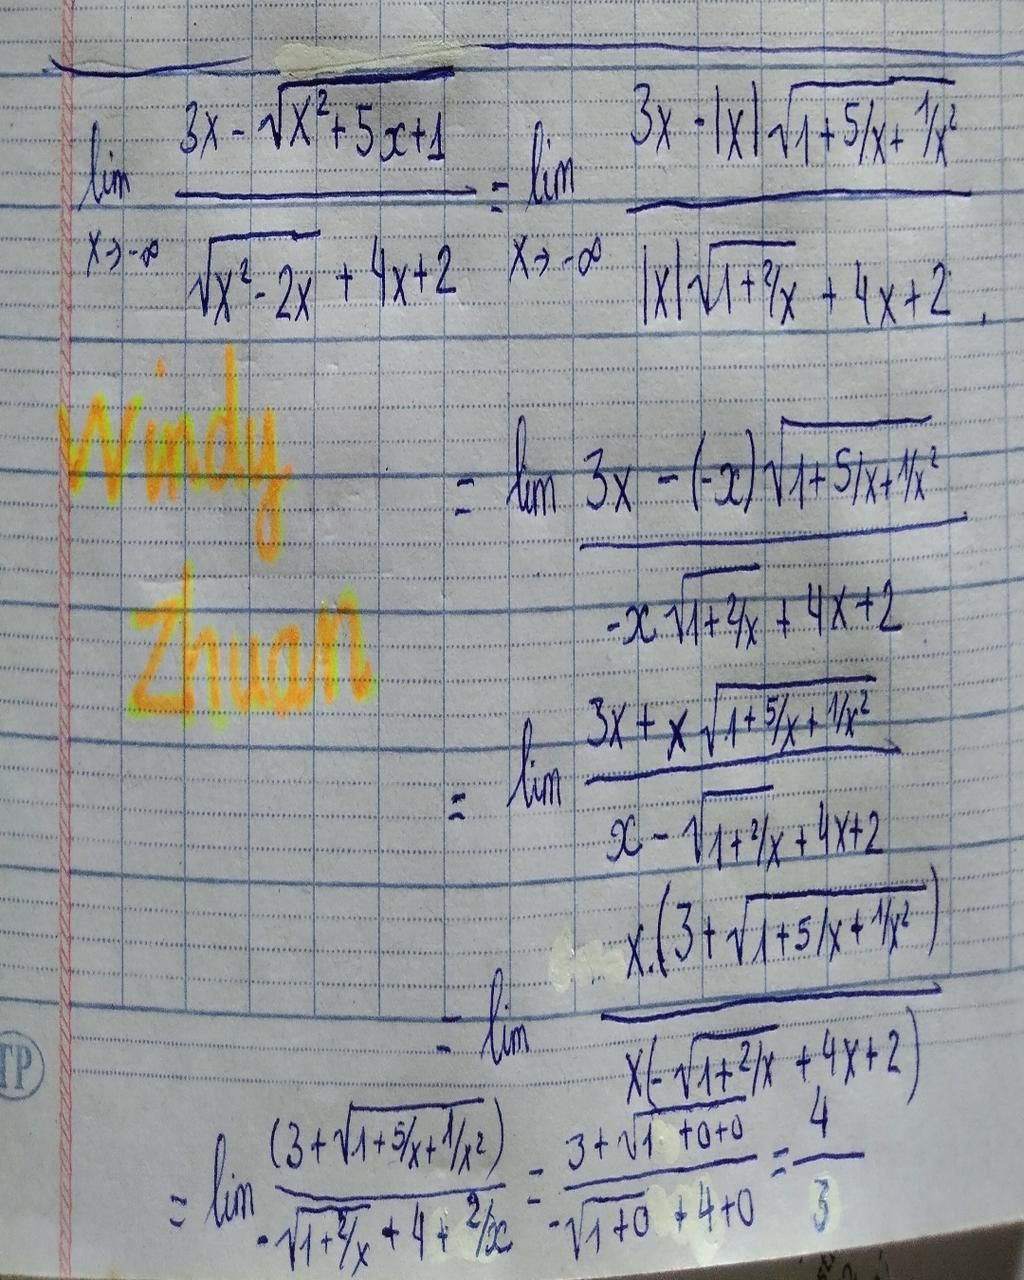 lim x→-∞ (3x - √(x²+5x+1)) / (√(x²-2x) + 4x+2) = lim x→-∞ (3x - |x|√(1+5/x+1/x²)) / (|x|√(1+2/x) + 4x+2) .
Windy
= lim (3x - (-x)√(1+5/x+1/x²)) / (-x√(1+2/x) + 4x+2)
Zhuan
= lim (3x + x√(1+5/x+1/x²)) / (x - √(1+2/x) + 4x+2)
- lim x.(3+√(1+5/x+1/x²)) / x(-√(1+2/x) + 4x+2)
TP
= lim (3+√(1+5/x+1/x²)) / (-√(1+2/x) + 4 + 2/x) = (3+√(1+0+0)) / (-√(1+0) + 4+0) = 4/3